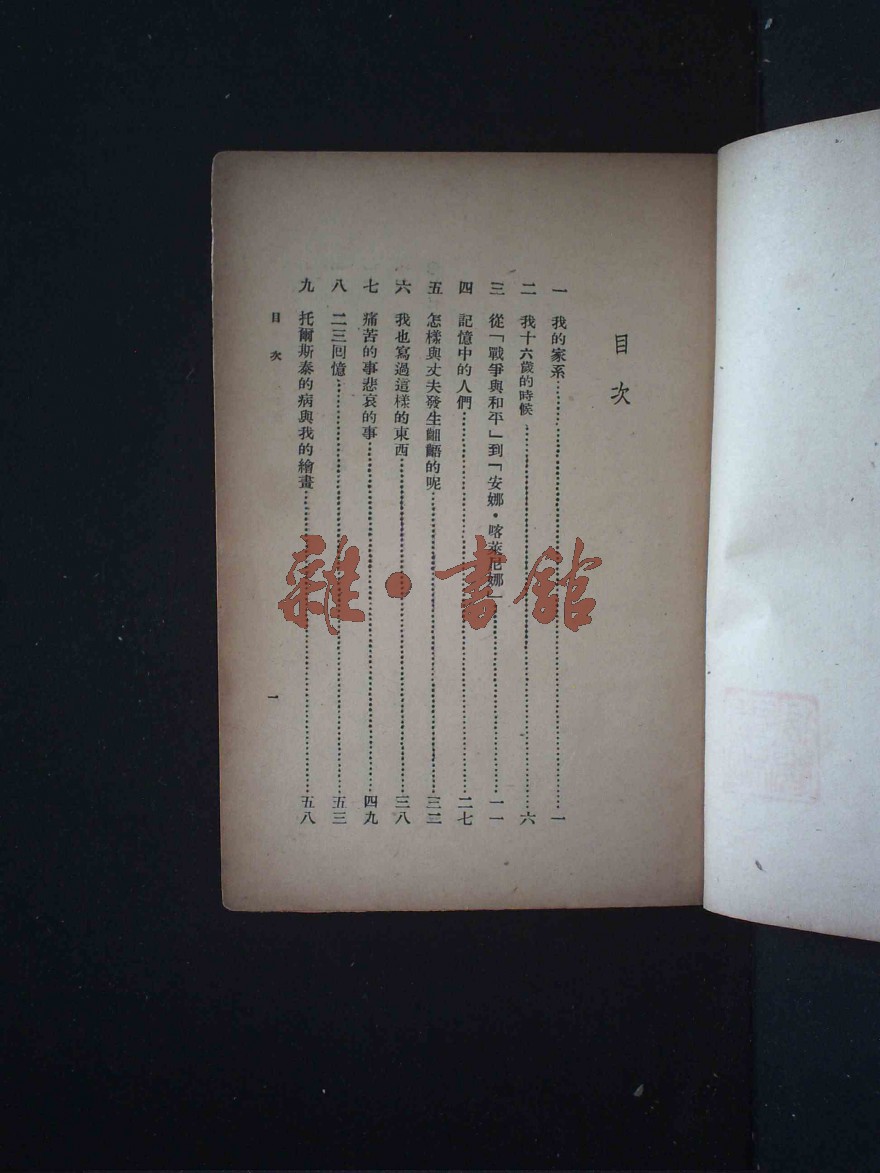 目次
一 我的家系 一
二 我十六歲的時候 六
三 從「戰爭與和平」到「安娜・喀萊尼娜」 一一
四 記憶中的人們 二七
五 怎樣與丈夫發生齟齬的呢 三二
六 我也寫過這樣的東西 三八
七 痛苦的事悲哀的事 四九
八 二三回憶 五三
九 托爾斯泰的病與我的繪畫 五八
目次
一
雜・書館